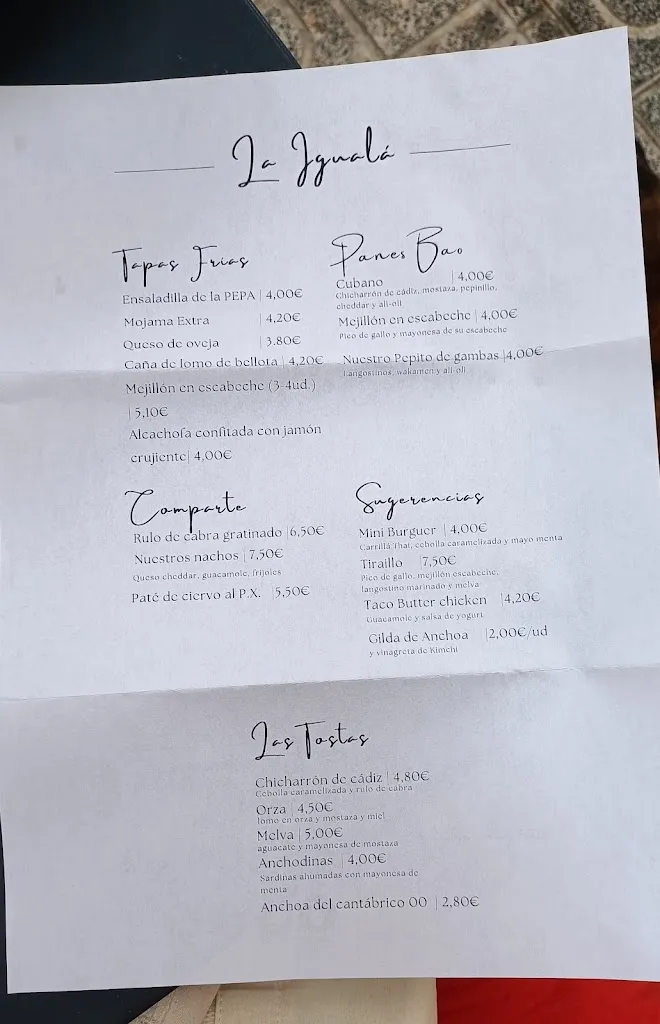 La Igualá
Tapas Frias
Ensaladilla de la PEPA | 4,00€
Mojama Extra | 4,20€
Queso de oveja | 3.80€
Caña de lomo de bellota | 4,20€
Mejillón en escabeche (3-4ud.)
| 5,10€
Alcachofa confitada con jamón
crujiente| 4,00€
Panes Bao
Cubano | 4,00€
Chicharrón de cádiz, mostaza, pepinillo,
cheddar y ali-oli
Mejillón en escabeche | 4,00€
Pico de gallo y mayonesa de su escabeche
Nuestro Pepito de gambas |4,00€
Langostinos, wakamen y ali-oli
Comparte
Rulo de cabra gratinado |6,50€
Nuestros nachos | 7,50€
Queso cheddar, guacamole, frijoles
Paté de ciervo al P.X. |5,50€
Sugerencias
Mini Burguer | 4,00€
Carrillá Thai, cebolla caramelizada y mayo menta
Tiraillo |7,50€
Pico de gallo, mejillón escabeche,
langostino marinado y melva
Taco Butter chicken |4,20€
Guacamole y salsa de yogurt
Gilda de Anchoa |2,00€/ud
y vinagreta de Kimchi
Las Tostas
Chicharrón de cádiz | 4,80€
Cebolla caramelizada y rulo de cabra
Orza | 4,50€
lomo en orza y mostaza y miel
Melva | 5,00€
aguacate y mayonesa de mostaza
Anchodinas | 4,00€
Sardinas ahumadas con mayonesa de
menta
Anchoa del cantábrico 00 | 2,80€